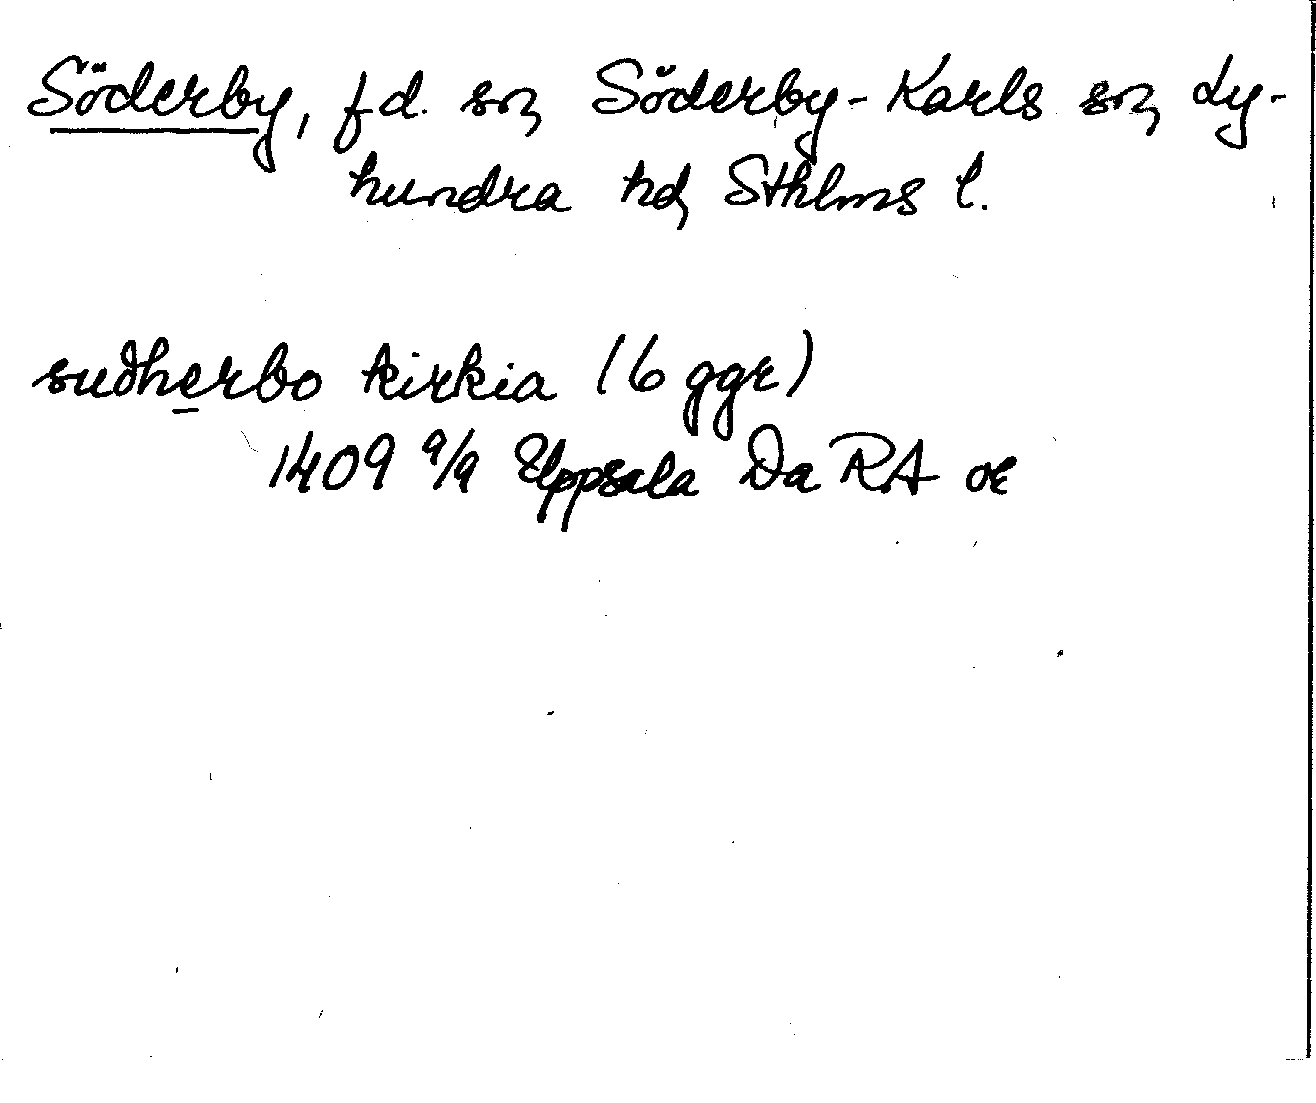 Söderby, f d. sn, Söderby-Karls sn, Ly-
hundra hd, Sthlms l.
sudherbo kirkia (6 ggr)
1409 9/9 Uppsala Da RA or